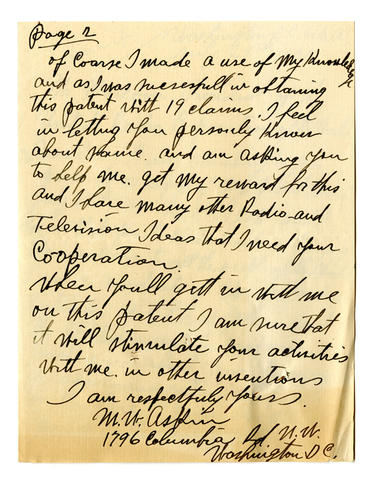 Page 2
of Coarse I made a use of my Knowledge
and as I was succesfull in obtaining
this patent with 19 claims. I feel
in letting you personly know
about same. and am asking you
to help me. get my reward for this
and I have many other Radio and
Television Ideas that I need your
Cooperation.
When youll gett in with me
on this patent I am sure that
it will stimulate your activities
with me. in other inventions
I am respectfuly yours.
M. W.
1796 Columbia Rd N.W.
Washington D.C.